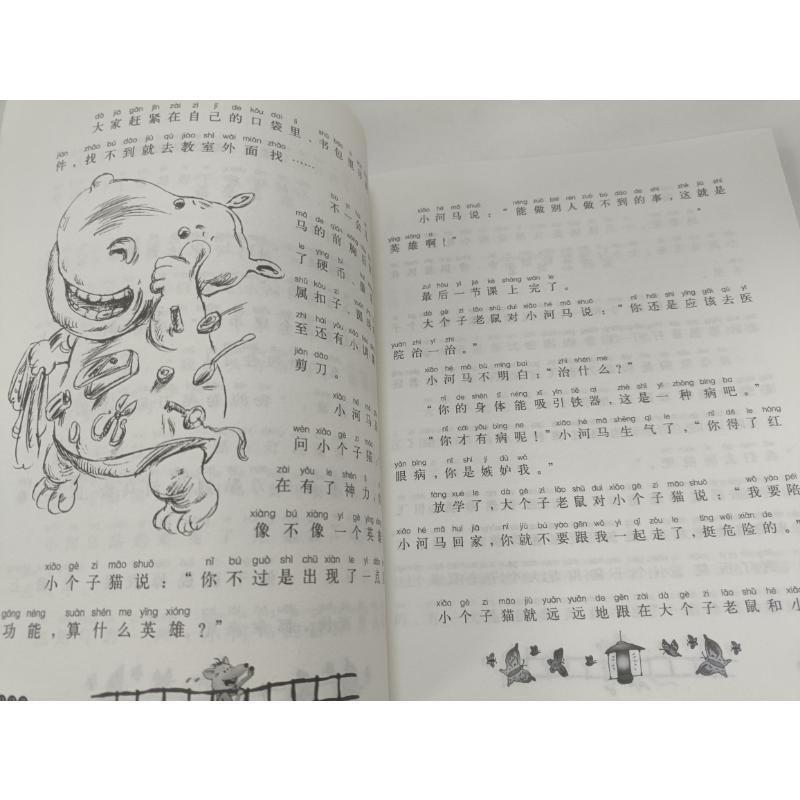 dà jiā gǎn jǐn zài zì jǐ de kǒu dai lǐ
大家赶紧在自己的口袋里、书包里
zhǎo bú dào jiù qù jiào shì wài miàn zhǎo
件，找不到就去教室外面找……
不一会
mǎ de qián xiōng
马的前胸
le yìng bì
了硬币、
shǔ kòu zi
属扣子，
zhì hái yǒu xiǎo
至还有小
jiǎn dāo
剪刀。
xiǎo hé mǎ
小河马
wèn xiǎo gè zi māo
问小个子猫
zài yǒu le shén lì
在有了神力，
xiàng bú xiàng yí gè yīng
像不像一个英
xiǎo gè zi māo shuō nǐ bú guò shì chū xiàn le yì diǎn
小个子猫说：“你不过是出现了一点
gōng néng suàn shén me yīng xióng
功能，算什么英雄？”
xiǎo hé mǎ shuō néng zuò bié rén zuò bú dào de shì zhè jiù shì
小河马说：“能做别人做不到的事，这就是
yīng xióng a
英雄啊！”
zuì hòu yì jié kè shàng wán le
最后一节课上完了。
dà gè zi lǎo shǔ duì xiǎo hé mǎ shuō nǐ hái shì yīng gāi qù yī
大个子老鼠对小河马说：“你还是应该去医
yuàn zhì yí zhì
院治一治。”
xiǎo hé mǎ bù míng bai zhì shén me
小河马不明白：“治什么？”
nǐ de shēn tǐ néng xī yǐn tiě qì zhè shì yì zhǒng bìng ba
“你的身体能吸引铁器，这是一种病吧。”
nǐ cái yǒu bìng ne xiǎo hé mǎ shēng qì le nǐ dé le hóng
“你才有病呢！”小河马生气了，“你得了红
yǎn bìng nǐ shì jí dù wǒ
眼病，你是嫉妒我。”
fàng xué le dà gè zi lǎo shǔ duì xiǎo gè zi māo shuō wǒ yào péi
放学了，大个子老鼠对小个子猫说：“我要陪
xiǎo hé mǎ huí jiā nǐ jiù bú yào gēn wǒ yì qǐ zǒu le tǐng wēi xiǎn de
小河马回家，你就不要跟我一起走了，挺危险的。”
xiǎo gè zi māo jiù yuǎn yuǎn de gēn zài dà gè zi lǎo shǔ hé xiǎo
小个子猫就远远地跟在大个子老鼠和小